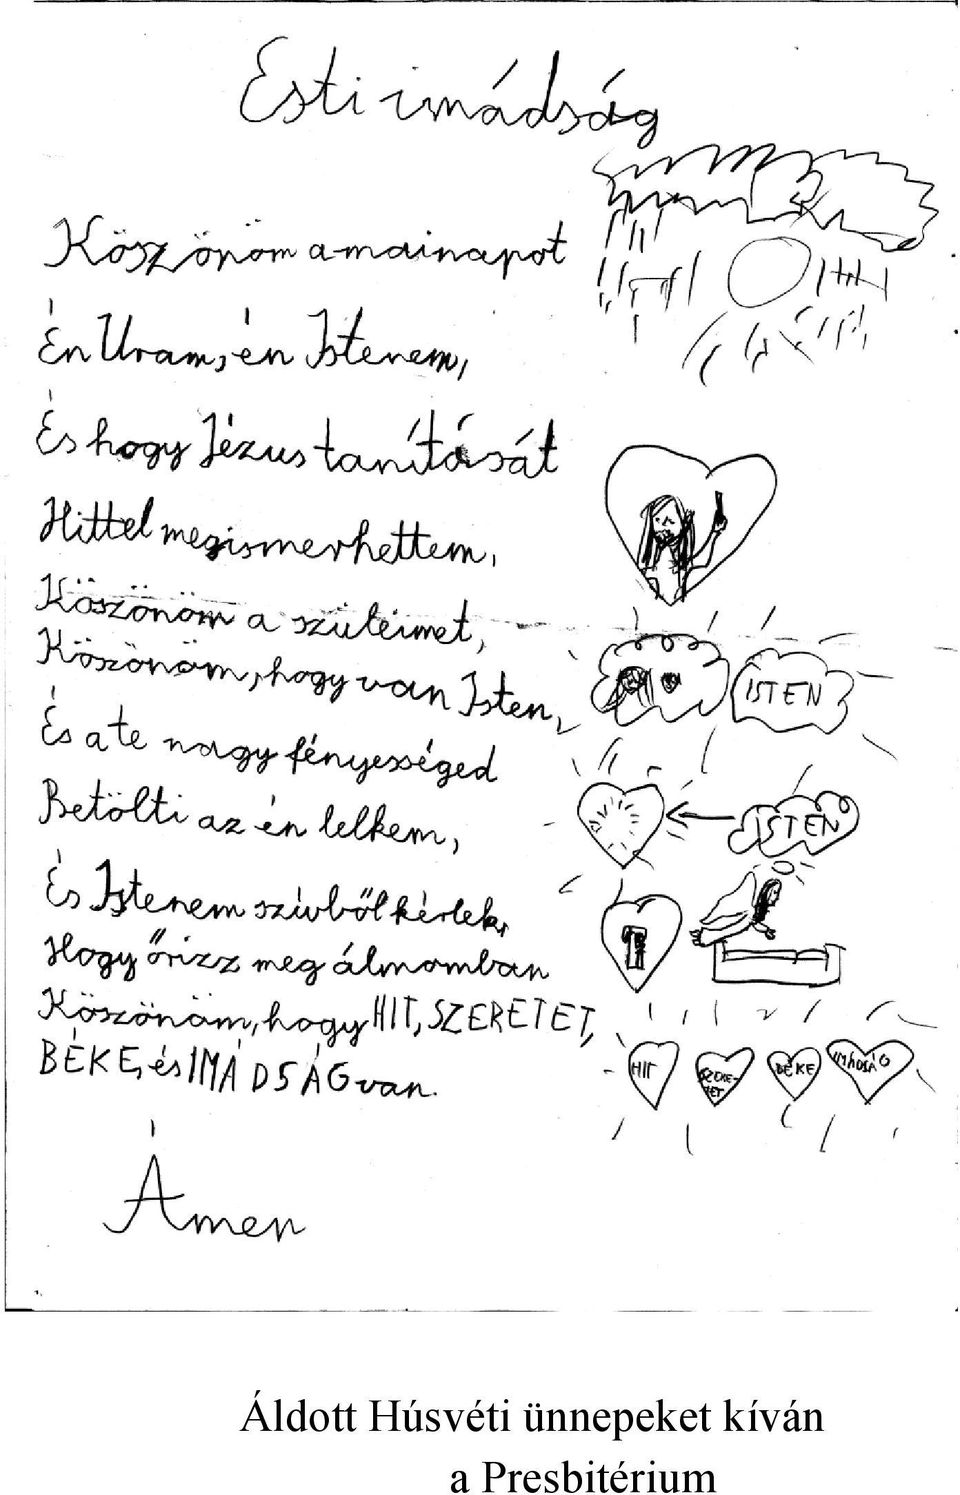 Esti imádság
Köszönöm a mai napot
Én Uram, én Istenem,
És hogy Jézus tanítását
Hittel megismerhettem,
Köszönöm a szüleimet,
Köszönöm, hogy van Isten,
És a te nagy fényességed
Betölti az én lelkem,
És Istenem szívből kérlek,
Hogy őrizz meg álmomban
Köszönöm, hogy HIT, SZERETET,
BÉKE, és IMÁDSÁG van.
Ámen
ISTEN
ISTEN
HIT
SZERE-
TET
BÉKE
IMÁDSÁG
Áldott Húsvéti ünnepeket kíván
a Presbitérium